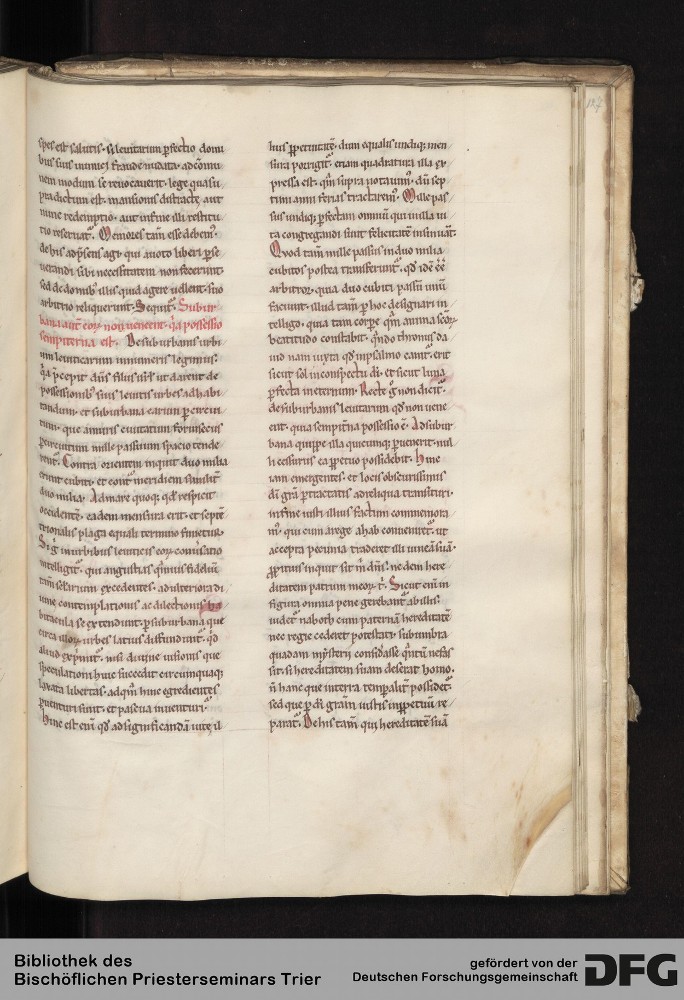 127
spes est salutis. si leuitarum pfectio domi
bus suis inimici fraude nudata. ad comu
nem modum se reuocauerit. lege quasi
pra dictum est. mansionis distracte aut
nunc redemptio. aut in fine illi restitu
tio reseruat. Memores tam esse debem
de his adpsens agi. qui a uoto liberi pse
uerandi sibi necessitatem non fecerunt.
sed de domib illis quid agere uellent. suo
arbitrio reliquerunt. Sequit. Subur
bana aut eor non ueneent. qa possessio
sempiterna est. De suburbanis urbi
um leuiticarum in numeris legimus.
qa pcepit dns filiis isrl ut darent de
possessionib suis leuitis urbes ad habi
tandum. et suburbana earum p circui
tum. que a muris ciuitatum forinsecus
p circuitum mille passuum spacio tende
rent. Contra orientem inquit duo milia
erunt cubiti. et cont meridiem similit
duo milia. Ad mare quoq qd respicit
occidente. eadem mensura erit. et septe
trionalis plaga equali termino finietur.
Si g in urbibus leuiticis eor conuersatio
intelligit. qui angustias
tam excedentes. ad ulteriora di
uine contemplationis ac dilectionis ha
bitacula se extendunt. p suburbana que
circa illor urbes latius diffundunt. qd
aliud exprimit. nisi diuine uisionis que
speculationi huic succedit circumquaq;
lustrata libertas. ad qm hinc egredientes
puenturi sunt. et pascua inuenturi.
Hinc est eni qd ad significandam uite il
lius ppetuitate. dum equalis undiq; men
sura porrigit. etiam quadratura illa ex
pressa est. qm supra notauim. du sep
timi anni ferias tractarem. Mille pas
sus undiq; pfectam omniu qui in illa ui
ta congregandi sunt felicitate insinuat.
Quod tam mille passus in duo milia
cubitos postea transferunt. qd ide ee
arbitror. quia duo cubiti passu unu
faciunt. illud tam p hoc designari in
telligo. quia tam corpore qm anima scor
beatitudo constabit. qndo thronus da
uid nam iuxta qd in psalmo canit. erit
sicut sol in conspectu di. et sicut luna
pfecta in eternum. Recte g non dicit.
de suburbanis leuitarum qd non uene
ent. quia sempitna possessio e. Ad subur
bana quippe illa quicumq; puenerit. nul
li cessurus ea ppetuo possidebit. Hinc
iam emergentes. et locis obscurissimis
di gra ptractatis ad reliqua transituri.
in fine iusti illius factum commemora
m. qui cum a rege ahab conueniret. ut
accepta pecunia traderet illi uinea sua.
ppitius inquit sit m dns. ne dem here
ditatem patrum meor t. Sicut eni in
figura omnia pene gerebant ab illis.
uidet naboth cum paternam hereditate
nec regie cederet potestati. sub umbra
quadam mysterii considasse qntu nefas
sit. si hereditatem suam deserat homo.
n hanc que in terra temporalit possidet.
sed que p di gram iustis in ppetuu re
parat. De his tam qui hereditate sua
Bibliothek des
Bischöflichen Priesterseminars Trier
gefördert von der
Deutschen Forschungsgemeinschaft
DFG